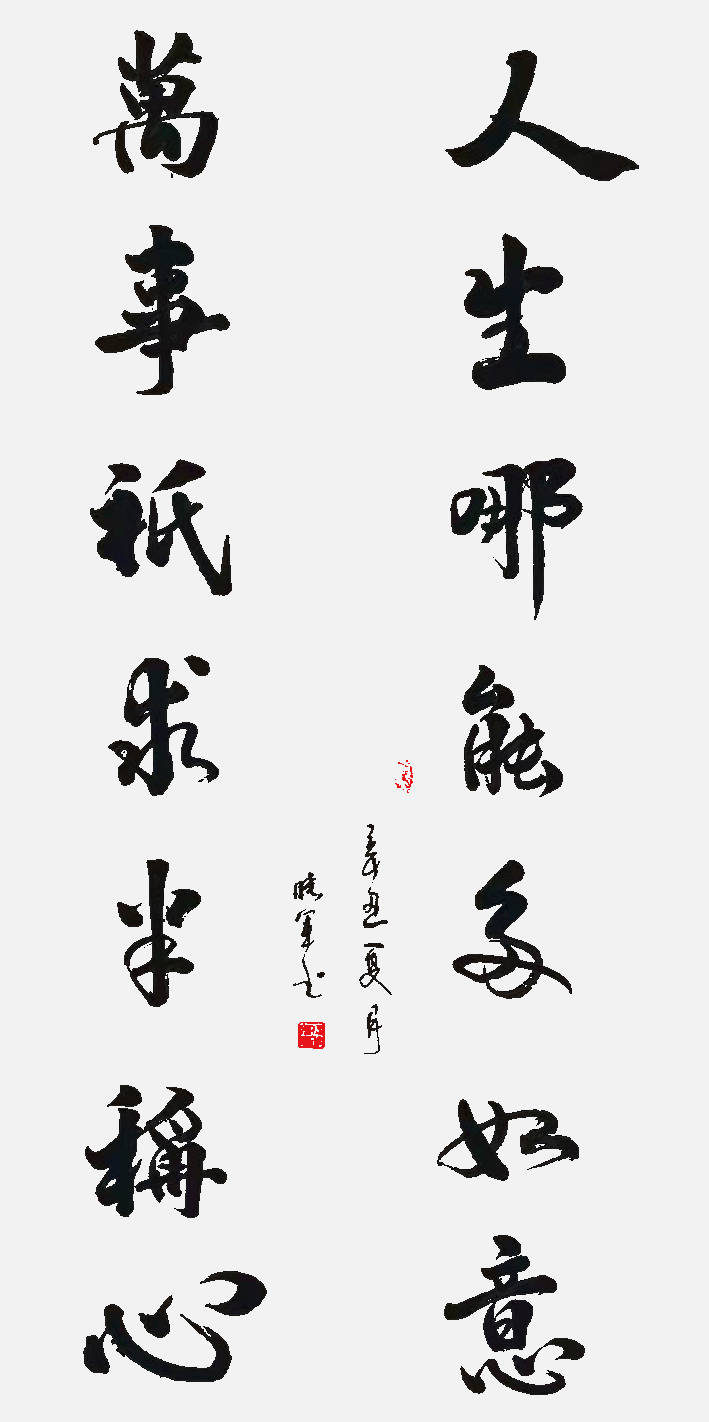 人生哪能多如意
萬事祇求半稱心
辛丑夏月
曉軍书